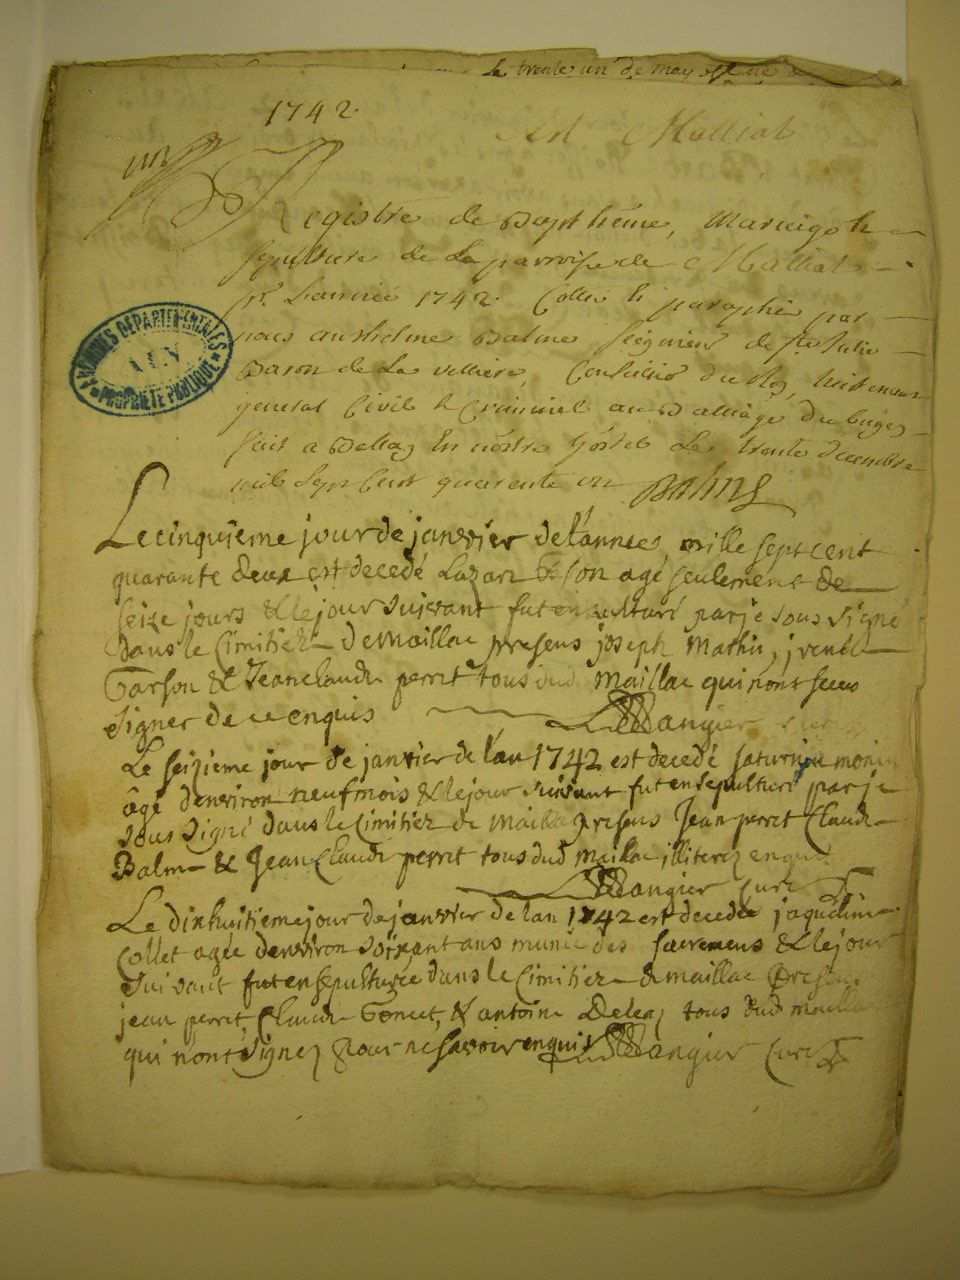 Le trente un de may
1742.
un
Registre de Baptheme, Mariage &
sepulture de La parroisse de Malliat
pr. Lannée 1742. Cotté & paraphé par
nous Anthelme Balme seigneur de Ste Julie
Baron de La velliere, Conseillier du Roy, Lieutenant
general Civil & Criminel au Balliage du bugey
fait a Belley En nôtre hôtel Le trente decembre
mil sept Cent quarante un Balme
ARCHIVES DEPARTEMENTALES
AIN
PROPRIÉTÉ PUBLIQUE
Le cinquieme jour de janvier de l'annee mille sept cent
quarante deux est decedé Lazare agé seulement de
seize jours & le jour suivant fut ensepulturé par je sous signé
dans le Cimitiere de maillac presens joseph Mathieu,
Garson & Jean claude perret tous dud maillac qui n'ont sceu
signer de ce enquis Mangier curé
Le seizieme jour de janvier de l'an 1742 est decedé saturnin monin
âgé d'environ neuf mois & le jour suivant fut ensepulturé par je
sous signé dans le Cimitiez de mailla presens Jean perret Claude
Balme & Jean Claude perret tous dud mailac illiterez enquis
Mangier Curé
Le dixhuitieme jour de janvier de lan 1742 est decedée jaqueline
Collet agée denviron soixant ans munie des sacremens & le jour
suivant fut ensepulturée dans le Cimitiez de maillac presens
jean perret, Claude Gonet, & antoine Deleaz tous dud maillac
qui n'ont signez pour ne savoir enquis Mangier Curé